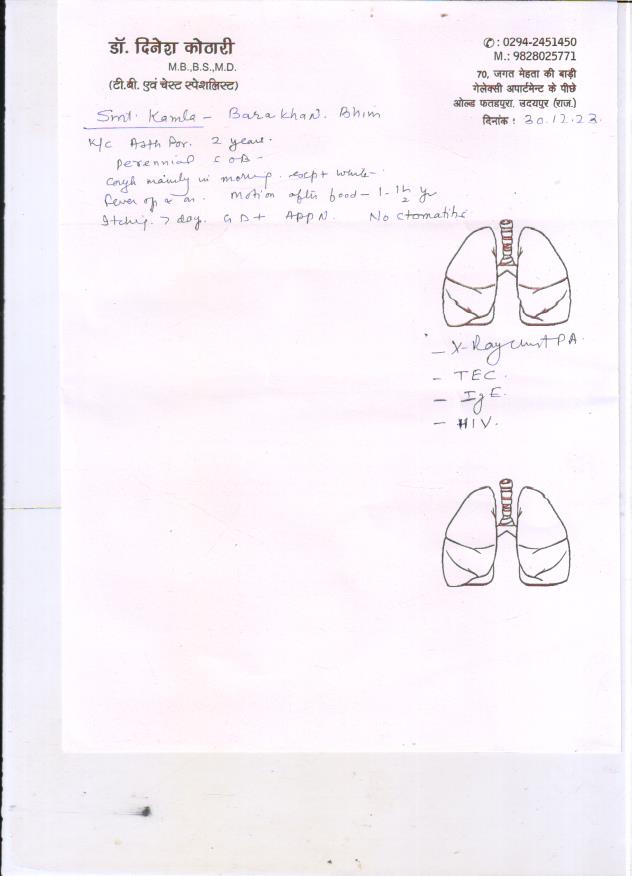 डॉ. दिनेश कोठारी
M.B.,B.S.,M.D.
(टी.बी. एवं चेस्ट स्पेशलिस्ट)
✆ : 0294-2451450
M.: 9828025771
70, जगत मेहता की बाड़ी
गेलेक्सी अपार्टमेन्ट के पीछे
ओल्ड फतहपुरा, उदयपुर (राज.)
दिनांक : 30.12.23.
Smt. Kamla - Barakhan. Bhim
K/c Asth for. 2 years.
perennial SOB -
Cough mainly in morning. white
Fever Motion after food - 1 - 1½ yr
Itching > day. GD + APPN. No
- X-Ray chest PA.
- TEC.
- IgE.
- HIV.